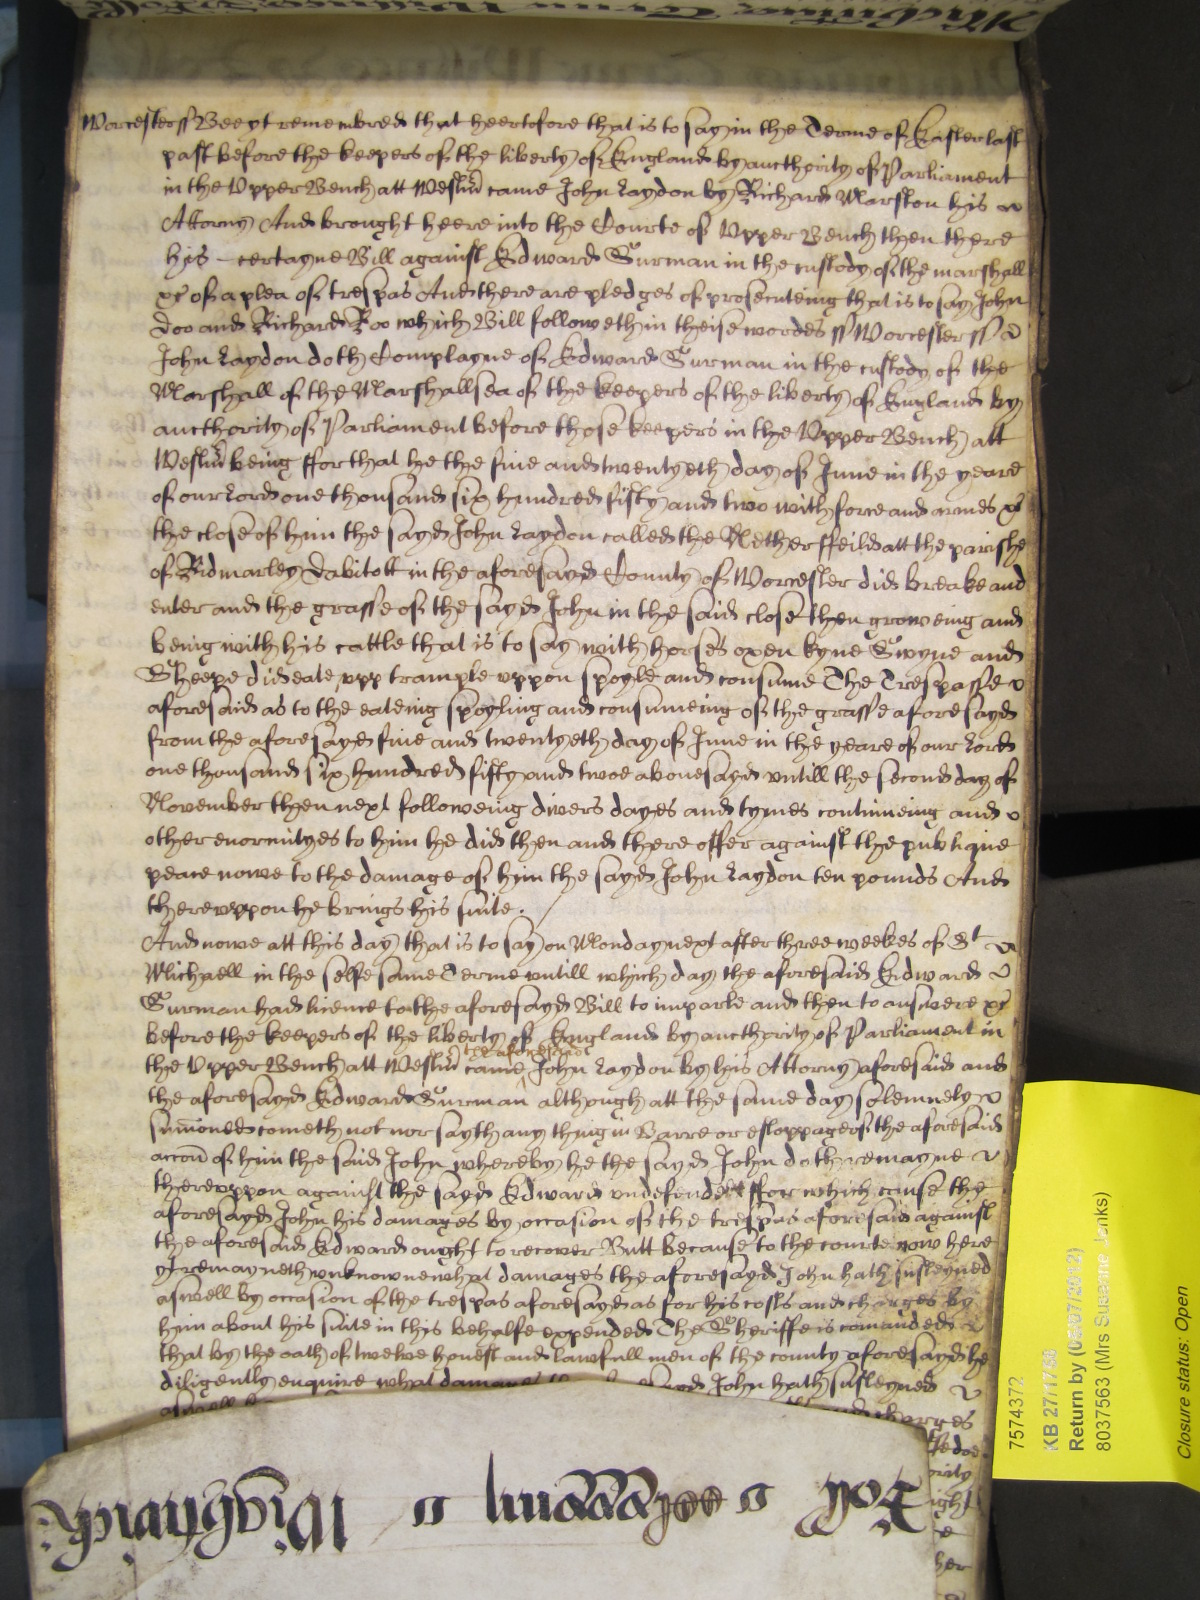 Worcesterss Bee yt remembred that heertofore that is to say in the Terme of Easter last
past before the keepers of the liberty of England by aucthority of Parliament
in the Upper Bench att Westm̃ came John Laydon by Richard Marston his
Attorny And brought heere into the Courte of Upper Bench then there
his certayne Bill against Edward Surman in the custody of the marshall
&c of a plea of trespas And there are pledges of prosecuteing that is to say John
Doo and Richard Roo which Bill followeth in theise wordes ss Worcesterss
John Laydon doth Complayne of Edward Surman in the custody of the
Marshall of the Marshallsea of the keepers of the liberty of England by
aucthority of Parliament before those keepers in the Upper Bench att
Westm̃ being ffor that he the five and twentyeth day of June in the yeare
of our Lord one thousand six hundred fifty and two with force and armes &c
the close of him the sayd John Laydon called the Nether ffeild att the parishe
of Ridmarley Dabitott in the aforesayd County of Worcester did breake and
enter and the grasse of the sayd John in the said close then groweing and
being with his cattle that is to say with horses oxen kyne Swyne and
Sheepe did eate upp trample uppon spoyle and consume The Trespasse
aforesaid as to the eateing spoyling and consumeing of the grasse aforesayd
from the aforesayd five and twentyeth day of June in the yeare of our Lord
one thousand six hundred fifty and twoe abovesayd untill the second day of
November then next followeing divers dayes and tymes continueing and
other enormityes to him he did then and there offer against the publique
peace nowe to the damage of him the sayd John Laydon ten pounds And
thereuppon he brings his suite.
And nowe att this day that is to say on Monday next after three weekes of St
Michaell in the selfe same Terme untill which day the aforesaid Edward
Surman had licence to the aforesayd Bill to imparle and then to answere &c
before the keepers of the liberty of England by aucthority of Parliament in
the aforesaid
the Upper Bench att Westm̃ came John Laydon by his Attorny aforesaid and
the aforesayd Edward Surman although att the same day solemnely
sum̃oned cometh not nor sayth any thing in Barre or estoppage of the aforesaid
accoñ of him the said John whereby he the sayd John doth remayne
thereuppon against the sayd Edward undefended ffor which cause the
aforesayd John his damages by occasion of the trespas aforesaid against
the aforesaid Edward ought to recover Butt because to the courte now here
yt remayneth unknowne what damages the aforesayd John hath susteyned
aswell by occasion of the trespas aforesayd as for his costs and charges by
him about his suite in this behalfe expended The Sheriffe is comanded
that by the oath of twelve honest and lawfull men of the county aforesayd he
diligently enquire what damages John hath susteyned
charges
7574372
KB 27/1768
Return by (06/07/2012)
8037563 (Mrs Susanne Jenks)
Closure status: Open